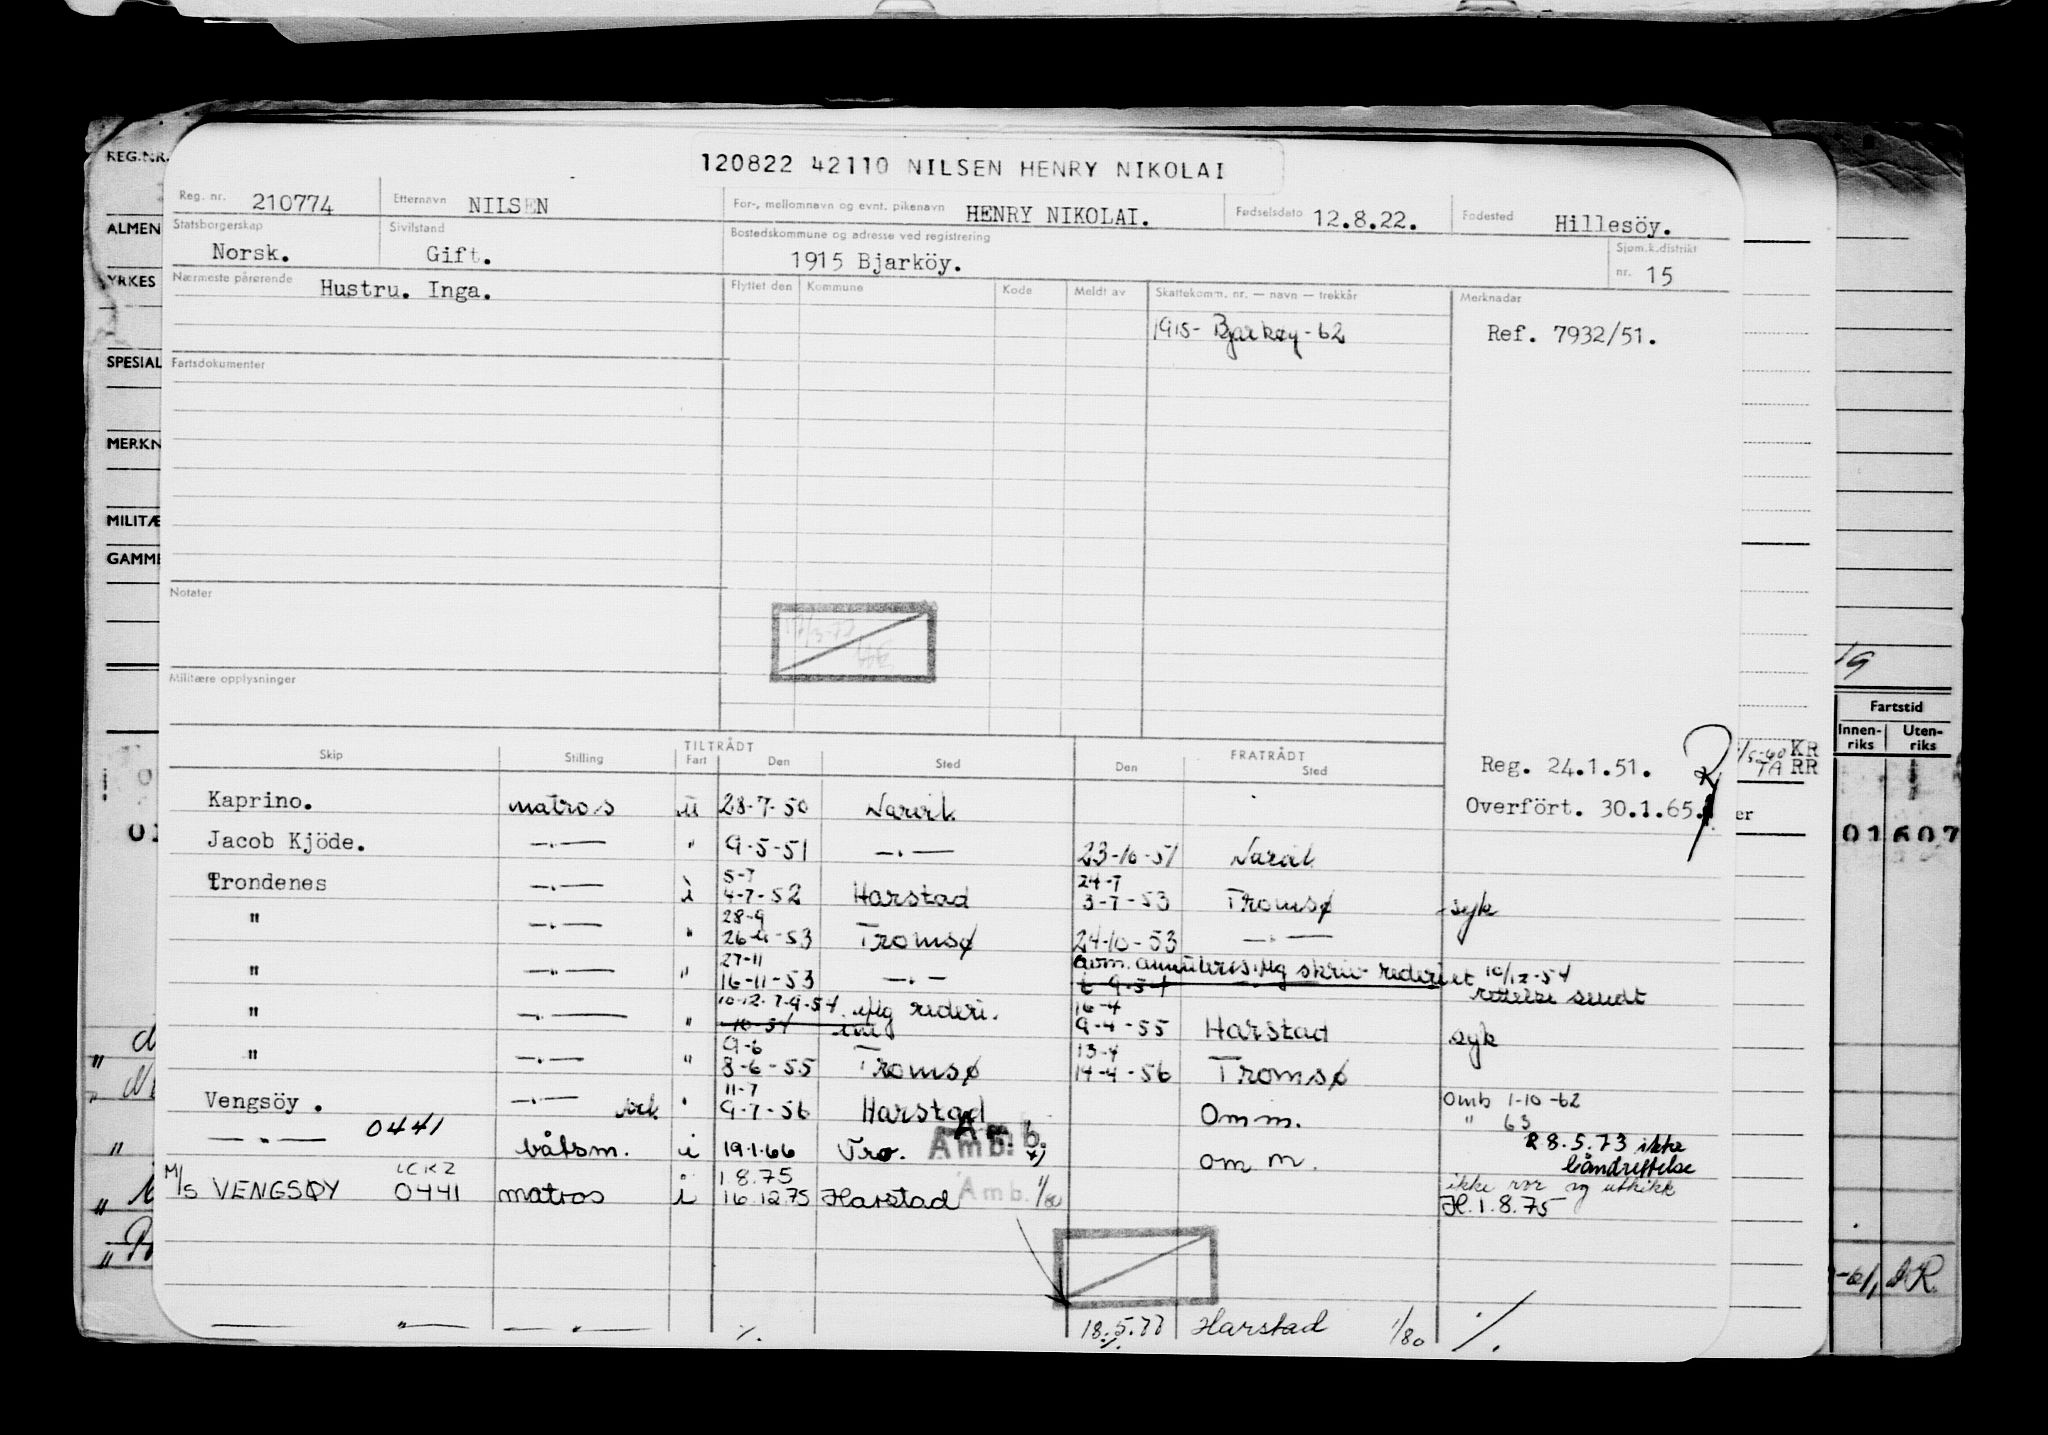 120822 42110 NILSEN HENRY NIKOLAI
REG.NR.
Reg. nr. 210774 Etternavn NILSEN For-, mellomnavn og evnt. pikenavn HENRY NIKOLAI. Fødselsdato 12.8.22. Fødested Hillesöy.
ALMEN
Statsborgerskap Norsk. Sivilstand Gift. Bostedskommune og adresse ved registrering 1915 Bjarköy. Sjøm.k.distrikt nr. 15
YRKES
Nærmeste pårørende Hustru. Inga. Flyttet den Kommune Kode Meldt av Skattekomm. nr. — navn — trekkår Merknadar
1915- Bjarkøy-62 Ref. 7932/51.
SPESIAL
Fartsdokumenter
MERKN
MILITÆ
GAMME
Notater
Militære opplysninger
19
Fartstid
Innen-riks Uten-riks
TILTRÅDT FRATRÅDT
Skip Stilling Fart Den Sted Den Sted
Reg. 24.1.51.
KR
TA RR
Kaprino. matros u 28-7-50 Narvik Overfört. 30.1.65. er
01607
Jacob Kjöde. —.— " 9-5-51 —.— 23-10-51 Narvik
5-7 24-7
Trondenes —.— i 4-7-52 Harstad 3-7-53 Tromsø syk
28-9
" —.— " 26-9-53 Tromsø 24-10-53 —.—
27-11 avm. annulleres iflg skriv rederiet 10/12-54
" —.— " 16-11-53 —.— 6-9-54 rettelse sendt
10-12. 7-9-54. iflg rederi. 16-4
" —.— " -10-54 9-4-55 Harstad syk
9-6 13-4
" —.— " 8-6-55 Tromsø 14-4-56 Tromsø
11-7
Vengsöy. —.— " 9-7-56 Harstad Omm. Omb 1-10-62
" 63
—.— 0441 båtsm. i 19.1.66 Tro. Amb. Omm. 28.5.73 ikke
håndrettelse
LCKZ 1.8.75 ikke ror og utkikk
M/S VENGSØY 0441 matros i 16.12.75 Harstad Amb. 1/80 H. 1.8.75
— " — — " — %. 18.5.77 Harstad 1/80 %.